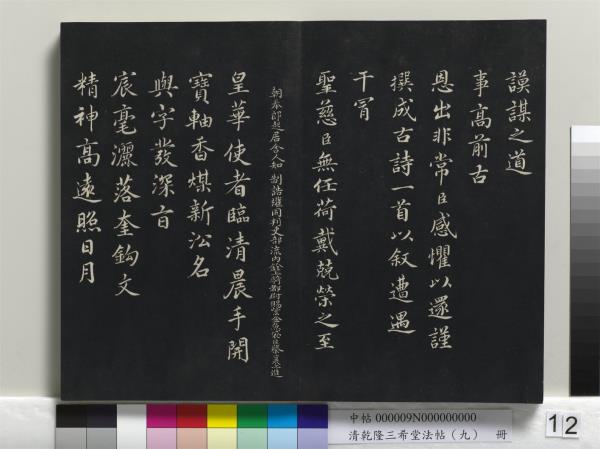 謨謀之道
事高前古
恩出非常臣感懼以還謹
撰成古詩一首以叙遭遇
干冐
聖慈臣無任荷戴兢榮之至
朝奉郎起居舍人知 制誥權同判吏部流内銓騎都尉賜緋魚袋臣蔡襄上進
皇華使者臨清晨手開
寶軸香煤新沿名
與字發深旨
宸毫灑落奎鈎文
精神高遠照日月
中帖 000009N000000000
清乾隆三希堂法帖（九） 冊
12